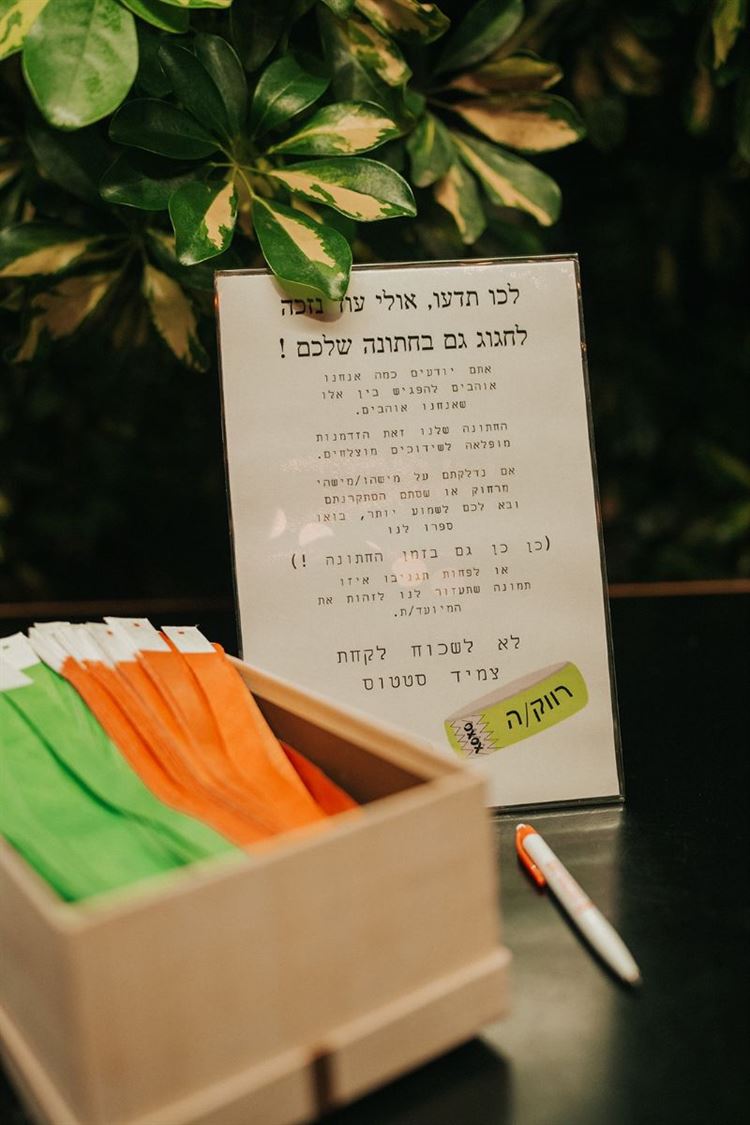 לכו תדעו, אולי עוד נזכה
לחגוג גם בחתונה שלכם !
אתם יודעים כמה אנחנו
אוהבים להפגיש בין אלו
שאנחנו אוהבים.
החתונה שלנו זאת הזדמנות
מופלאה לשידוכים מוצלחים.
אם נדלקתם על מישהו/מישהי
מרחוק או שסתם הסתקרנתם
ובא לכם לשמוע יותר, בואו
ספרו לנו
(כן כן גם בזמן החתונה !)
או לפחות תגניבו איזו
תמונה שתעזור לנו לזהות את
המיועד/ת.
לא לשכוח לקחת
צמיד סטטוס
רווק/ה
XOXO